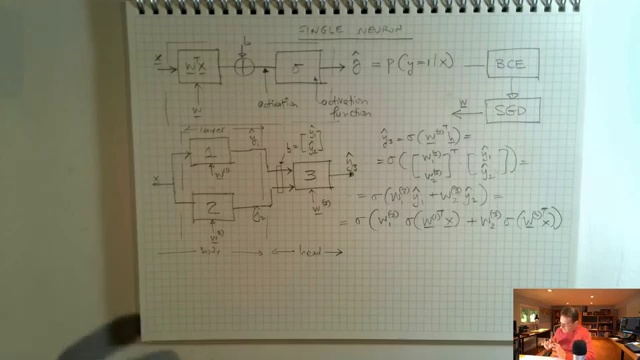 SINGLE NEURON
b
x
wᵀx
+
σ
ŷ = P(y=1|x)
BCE
w
activation
activation function
SGD
w
layer
ŷ₁
1
w⁽¹⁾
h = [ŷ₁ ŷ₂]
3
ŷ₃
w⁽³⁾
x
2
w⁽²⁾
ŷ₂
body
head
ŷ₃ = σ(w⁽³⁾ᵀ h) =
= σ([w₁⁽³⁾ w₂⁽³⁾]ᵀ [ŷ₁ ŷ₂]) =
= σ(w₁⁽³⁾ ŷ₁ + w₂⁽³⁾ ŷ₂) =
= σ(w₁⁽³⁾ σ(w⁽¹⁾ᵀ x) + w₂⁽³⁾ σ(w⁽²⁾ᵀ x))